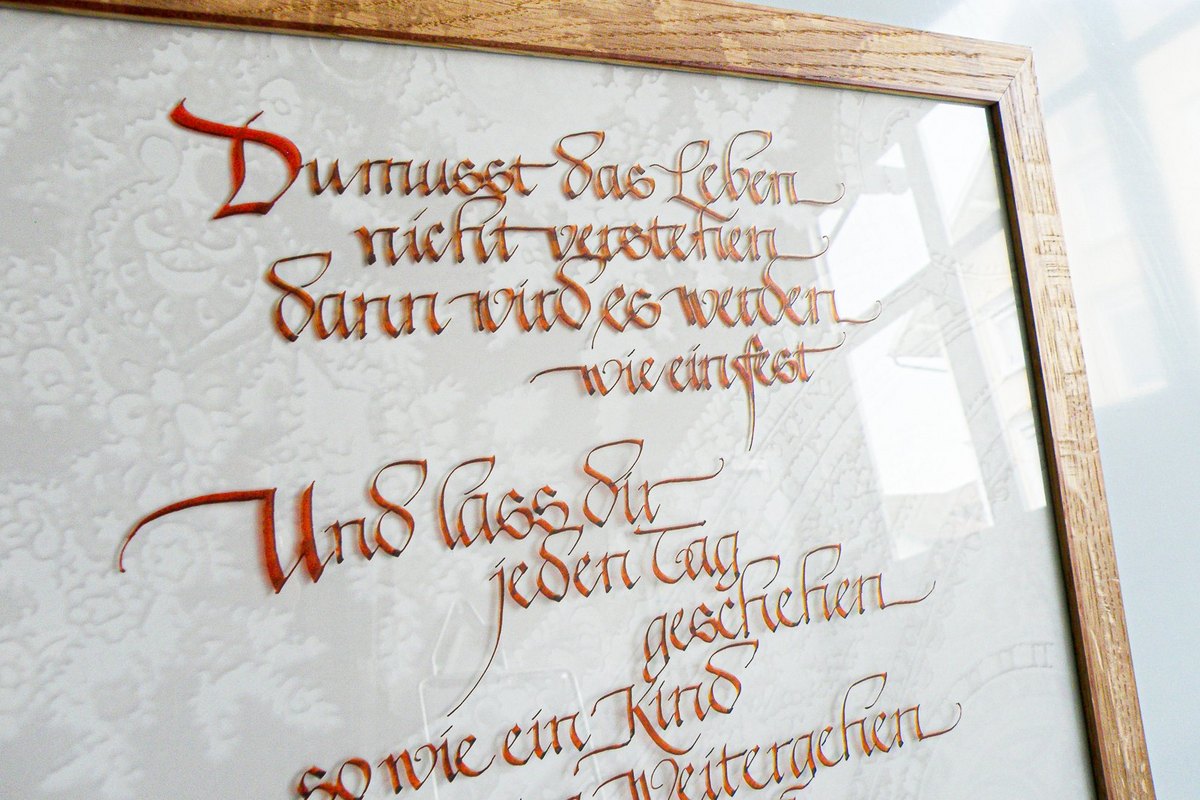 Du musst das Leben
nicht verstehen
dann wird es werden
wie ein fest
Und lass dir
jeden Tag
geschehen
so wie ein Kind
Weitergehen